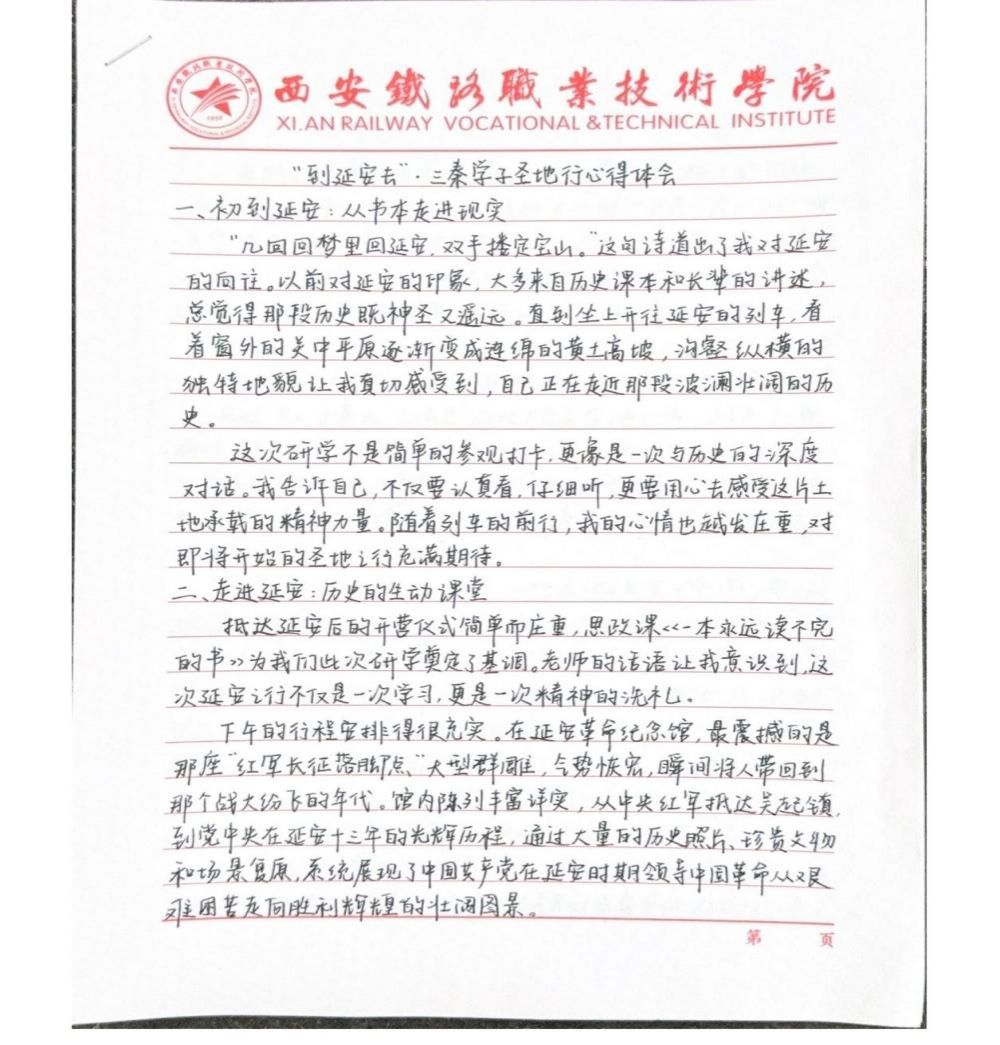 西安鐵路職業技術學院
XI.AN RAILWAY VOCATIONAL &TECHNICAL INSTITUTE
1956
“到延安去”·三秦学子圣地行心得体会
一、初到延安：从书本走进现实
“几回回梦里回延安，双手搂定宝山。”这句诗道出了我对延安
的向往。以前对延安的印象，大多来自历史课本和长辈的讲述，
总觉得那段历史既神圣又遥远。直到坐上开往延安的列车，看
着窗外的关中平原逐渐变成连绵的黄土高坡，沟壑纵横的
独特地貌让我真切感受到，自己正在走近那段波澜壮阔的历
史。
这次研学不是简单的参观打卡，更像是一次与历史的深度
对话。我告诉自己，不仅要认真看，仔细听，更要用心去感受这片土
地承载的精神力量。随着列车的前行，我的心情也越发庄重，对
即将开始的圣地之行充满期待。
二、走进延安：历史的生动课堂
抵达延安后的开营仪式简单而庄重，思政课<<一本永远读不完
的书>>为我们此次研学奠定了基调。老师的话语让我意识到，这
次延安之行不仅是一次学习，更是一次精神的洗礼。
下午的行程安排得很充实。在延安革命纪念馆，最震撼的是
那座“红军长征落脚点”大型群雕，气势恢宏，瞬间将人带回到
那个战火纷飞的年代。馆内陈列丰富详实，从中央红军抵达吴起镇，
到党中央在延安十三年的光辉历程，通过大量的历史照片、珍贵文物
和场景复原，系统展现了中国共产党在延安时期领导中国革命从艰
难困苦走向胜利辉煌的壮阔图景。
第 页